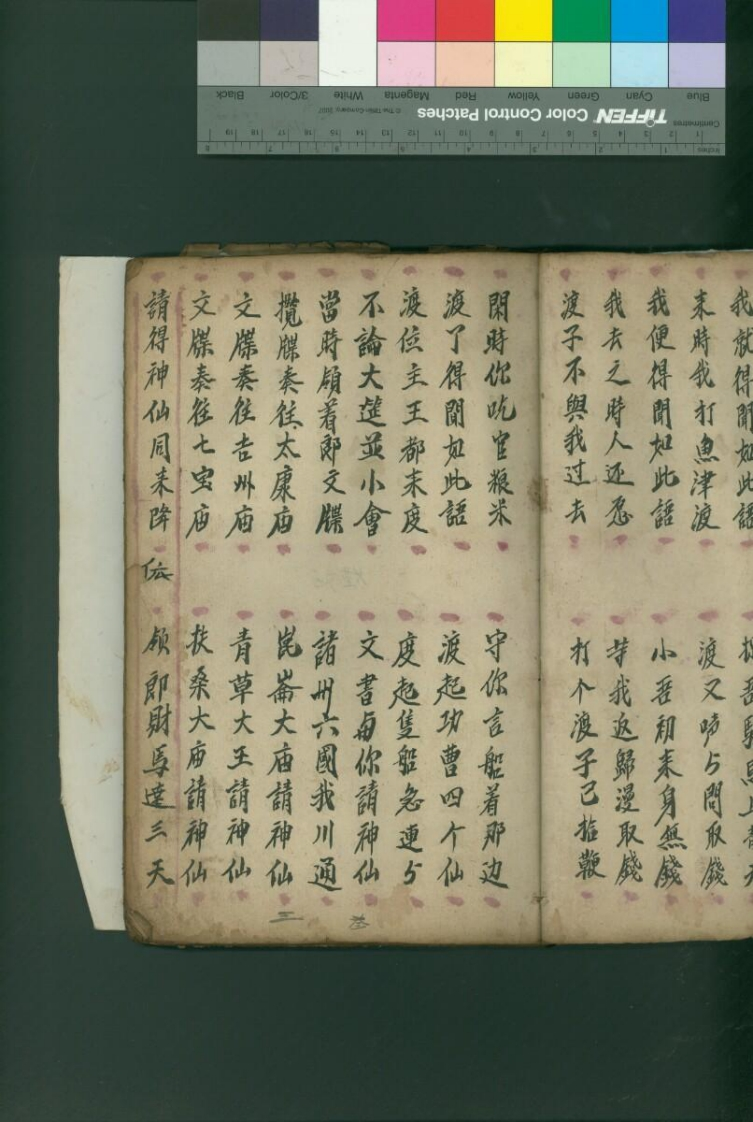 Blue Cyan Green Yellow Red Magenta White 3/Color Black
TIFFEN Color Control Patches
© The Tiffen Company, 2007
Centimetres
Inches
我就得聞如此語
來時我打魚津渡
渡又啼与問取錢
我便得聞如此語
小吾初来身無錢
我去之時人还忍
苛我返歸漫取錢
渡子不與我过去
打个渡子已掂鞭
閑時你吃官粮米
守你言船着那边
渡了得聞如此語
渡起功曹四个仙
渡位主王都末度
度起隻船急連与
不論大筵並小會
文書每你請神仙
當時領着郎文牒
諸州六國我川通
攬牒奏往太康庙
昆崙大庙請神仙
文牒奏往吉州庙
青草大王請神仙
文牒奏往七宝庙
扶桑大庙請神仙
請得神仙同来降
领郎財馬達三天